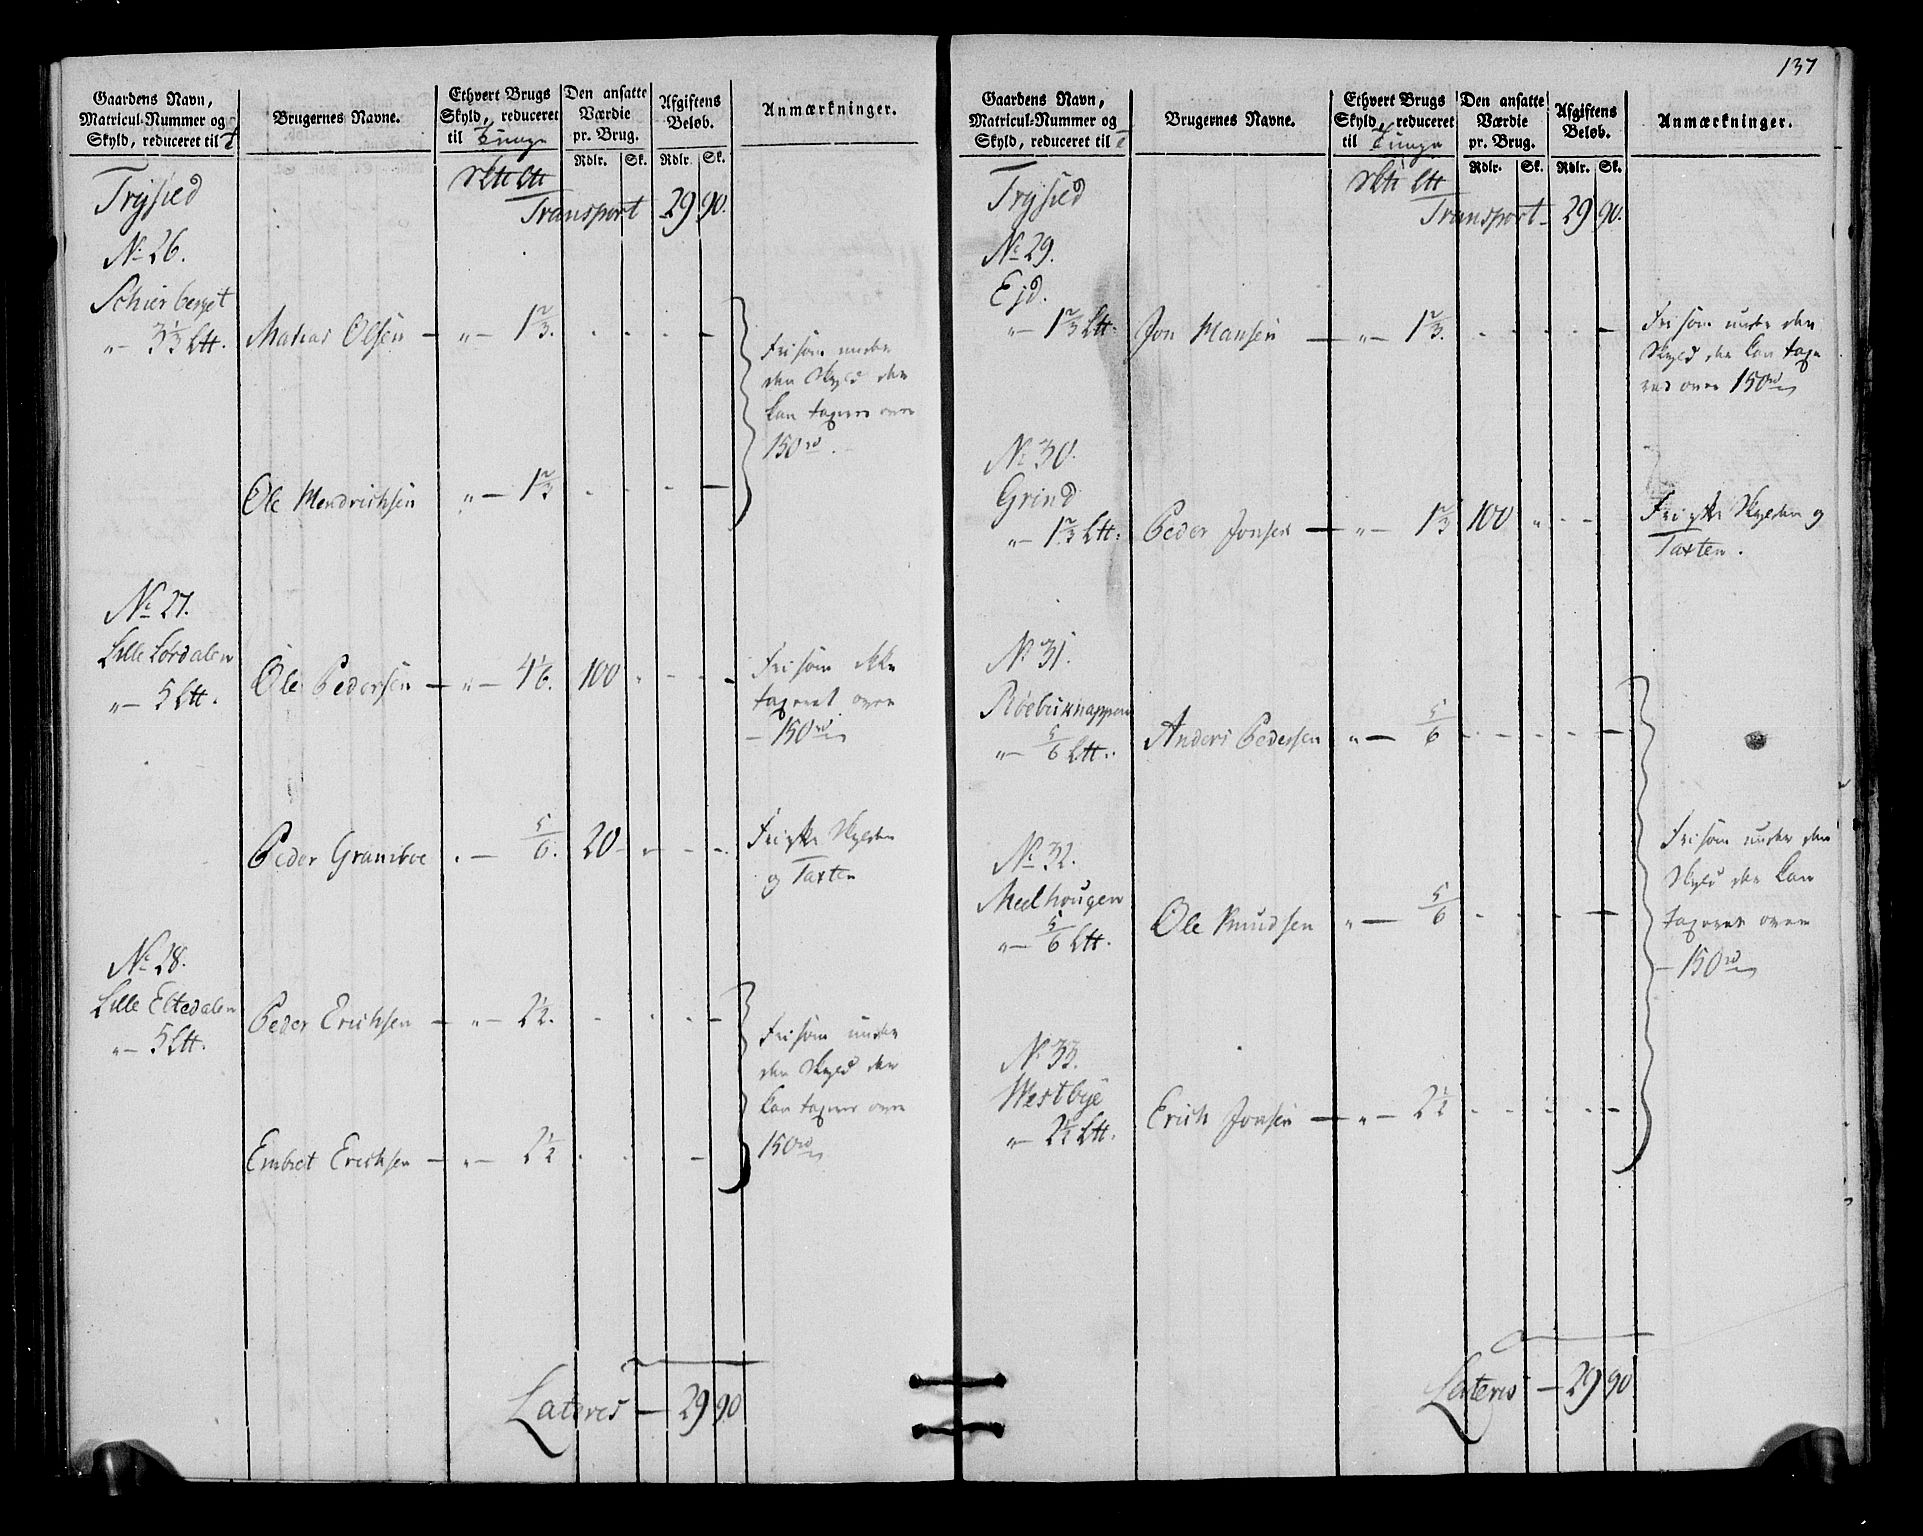 137
Gaardens Navn,
Matricul-Nummer og
Skyld, reduceret til
Brugernes Navne.
Ethvert Brugs
Skyld, reduceret
til Tunge
Den ansatte
Værdie
pr. Brug.
Rdlr. Sk.
Afgiftens
Beløb.
Rdlr. Sk.
Anmærkninger.
Trysild
Transport 29 90.
No 26.
Schierberget
„ — 3⅓ Ltt.
Matias Olsen — „ — 1⅔.
Fri som under
den Skyld der
kan taxeres over
150 rd.
Ole Hendrichsen „ — 1⅔
No 27.
Lille Lørdalen
„ — 5 Ltt.
Ole Pedersen — „ — 4⅙. 100
Fri som ikke
taxeret over
— 150 rd
Peder Gramboe „ — ⅚. 20
Fri efter Skylden
og Taxten
No 28.
Lille Eltedalen
„ — 5 Ltt.
Peder Erichsen — „ — 2½.
Fri som under
den Skyld der
kan taxeres over
150 rd
Embret Erichsen — „ — 2½
Lateris — 29 90
Gaardens Navn,
Matricul-Nummer og
Skyld, reduceret til
Brugernes Navne.
Ethvert Brugs
Skyld, reduceret
til Tunge
Den ansatte
Værdie
pr. Brug.
Rdlr. Sk.
Afgiftens
Beløb.
Rdlr. Sk.
Anmærkninger.
Trysild
Transport 29 90.
No 29.
Ejd.
„ — 1⅔ Ltt.
Jon Hansen — „ — 1⅔.
Fri som under den
Skyld der kan taxe
res over 150 rd
No 30.
Grind
„ — 1⅔ Ltt.
Peder Jonsen — „ — 1⅔ 100
Fri efter Skylden og
Taxten.
No 31.
Røebuknappen
„ — ⅚ Ltt.
Anders Pedersen „ — ⅚
No 32.
Melhougen
„ — ⅚ Ltt.
Ole Knudsen „ — ⅚
Fri som under den
Skyld der kan
taxeres over
— 150 rd
No 33.
Westbye
„ — 2½ Ltt.
Erich Jonsen — „ — 2½
Lateris — 29 90